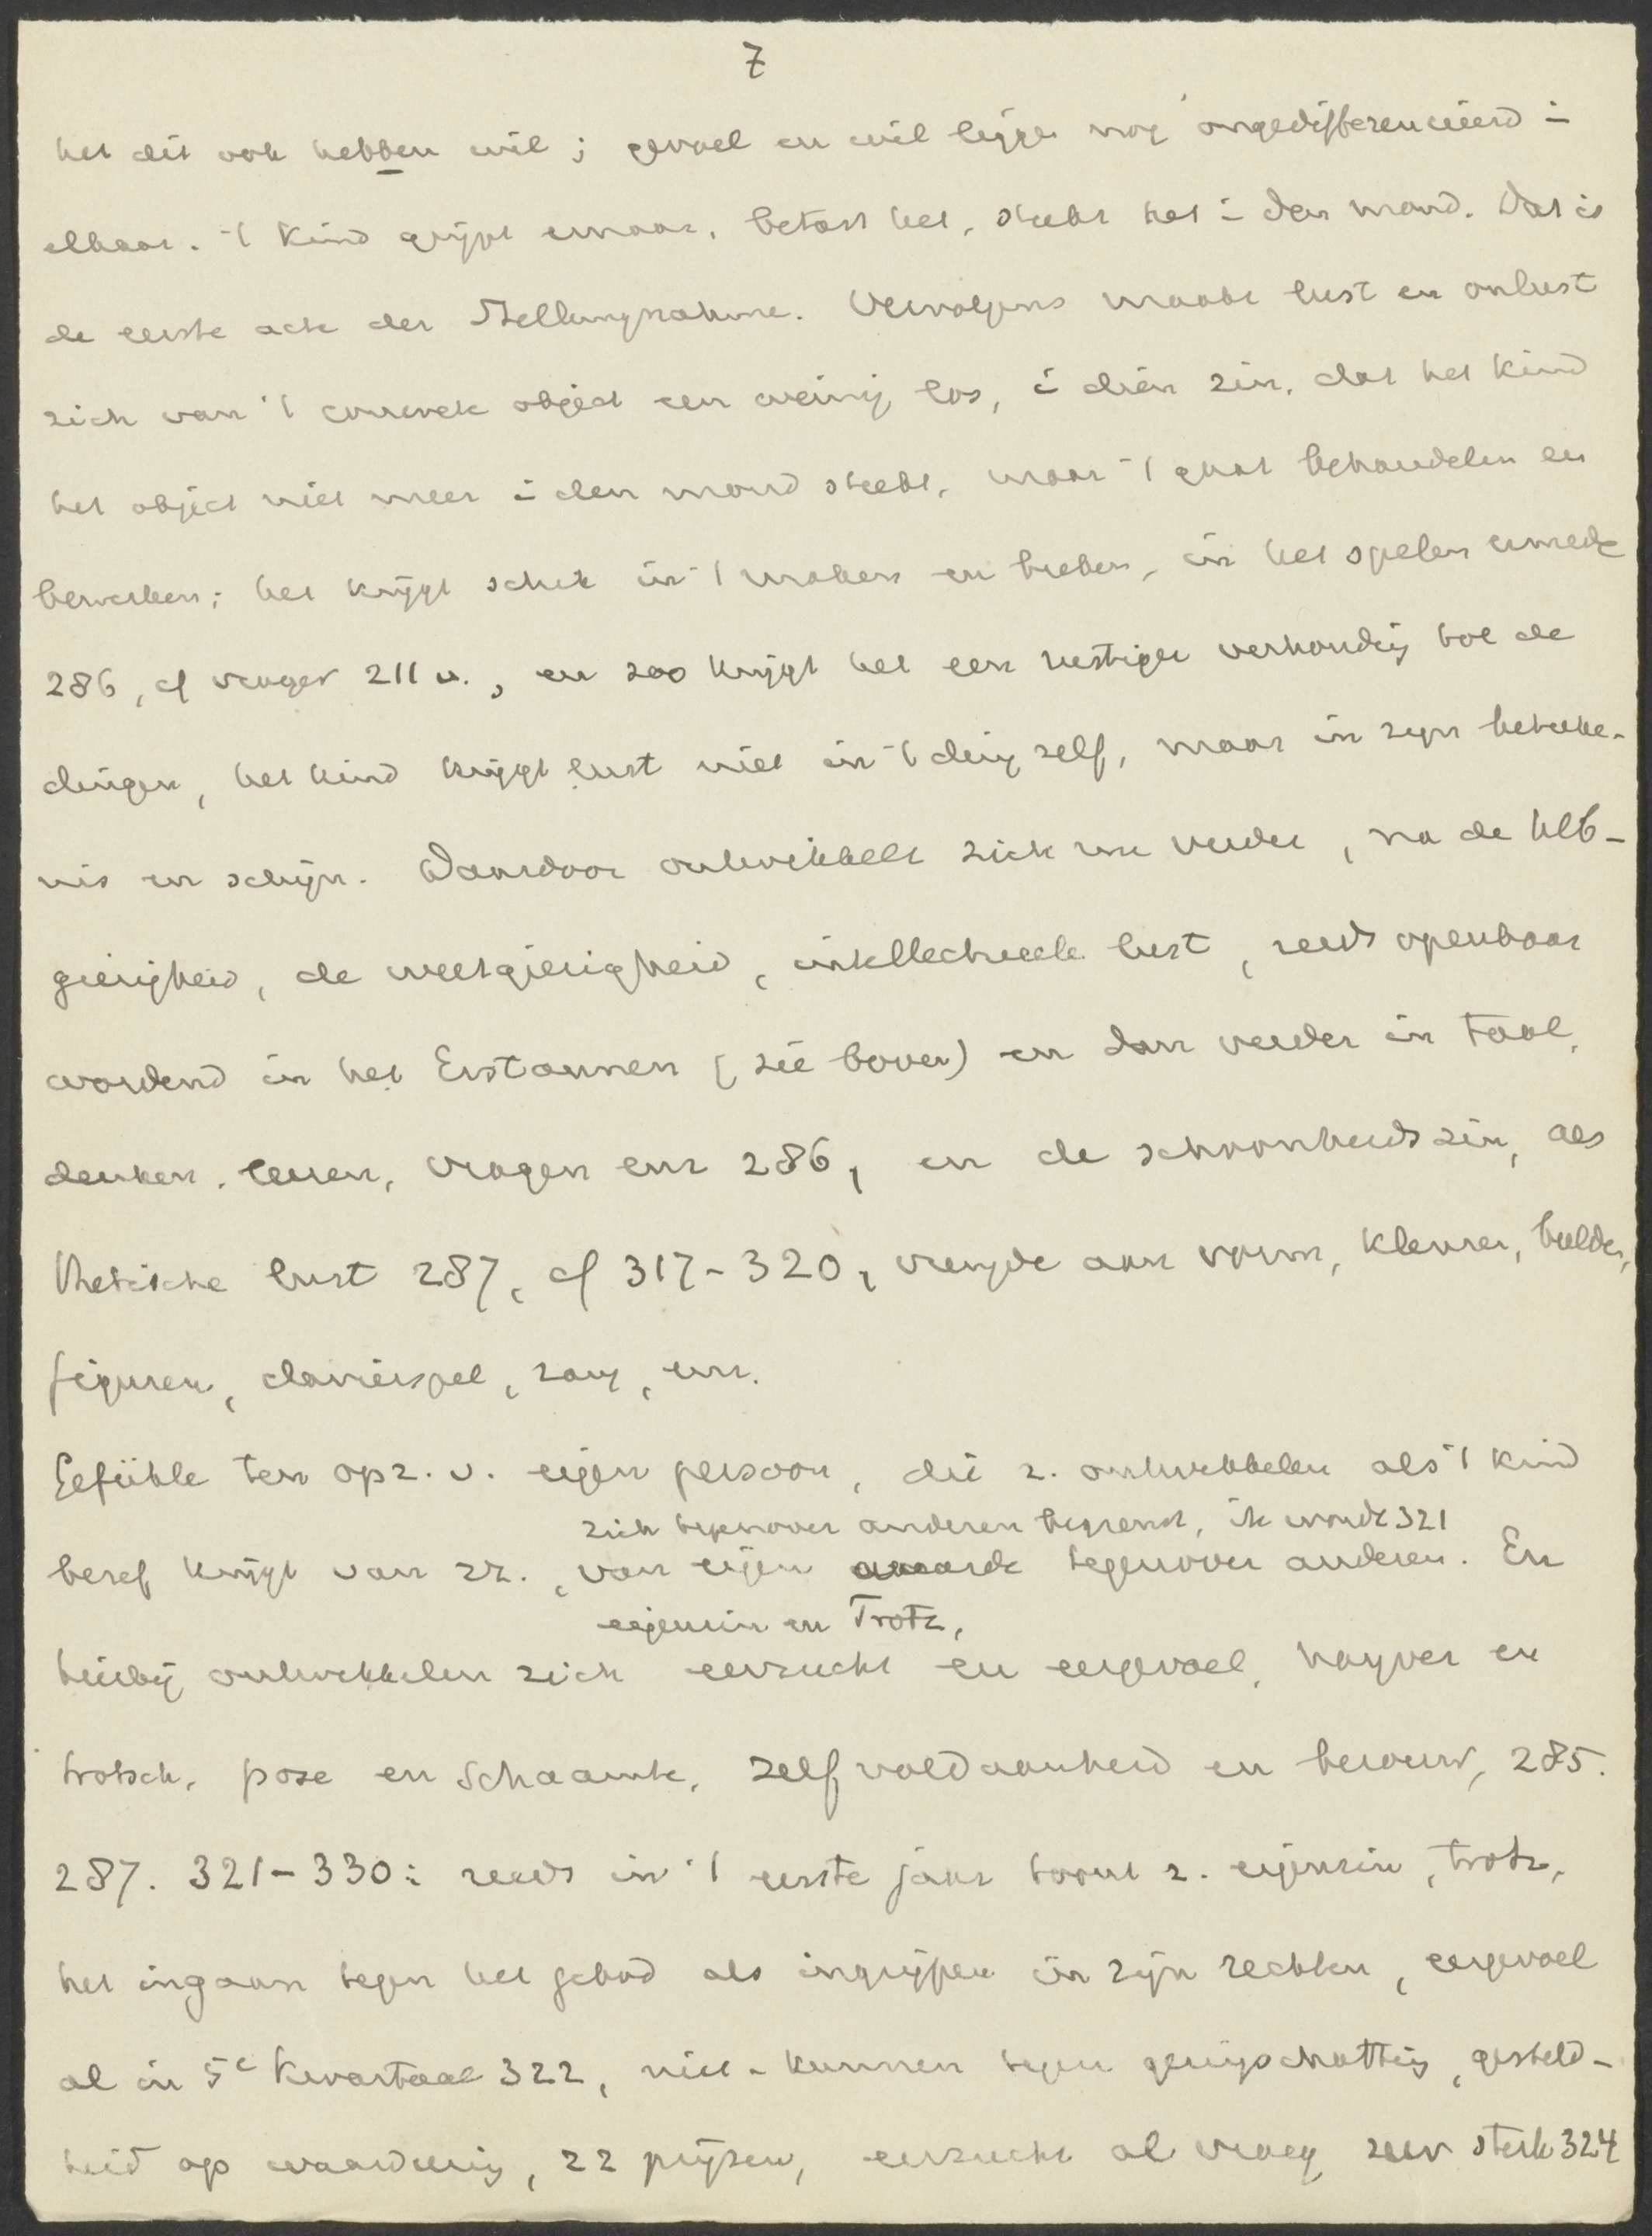 7
het dit ook hebben wil; gevoel en wil liggen nog ongedifferencieerd i
elkaar. 't Kind grijpt ernaar, betast het, steekt het i den mond. Dat is
de eerste acte der Stellungnahme. Vervolgens maakt lust en onlust
zich van 't concrete object een weinig los, i dien zin, dat het kind
het object niet meer i den mond steekt, maar 't gaat behandelen en
bewerken; het krijgt schik in 't maken en breken, in het spelen ermede
286, cf vroeger 211 v., en zoo krijgt het een rustiger verhouding tot de
dingen, het kind krijgt lust niet in 't ding zelf, maar in zijn beteeke-
nis en schijn. Daardoor ontwikkelt zich nu verder, na de heb-
gierigheid, de weetgierigheid, intellectueele lust, reeds openbaar
wordend in het Erstaunen (zie boven) en dan verder in taal,
denken, leeren, vragen enz 286, en de schoonheidszin, aes
thetische lust 287, cf 317-320, vreugde aan vorm, kleuren, beelden,
figuren, clavierspel, zang, enz.
Gefühle ten opz. v. eigen persoon, die z. ontwikkelen als 't kind
zich tegenover anderen begrenst, ik wordt 321
besef krijgt van zz., van eigen waarde tegenover anderen. En
eigenzin en Trotz,
hierbij ontwikkelen zich eerzucht en eergevoel, naijver en
trotsch, pose en schaamte, zelfvoldaanheid en berouw, 285.
287. 321-330: reeds in 't eerste jaar toont z. eigenzin, trotz,
het ingaan tegen het gebod als ingrijpen in zijn rechten, eergevoel
al in 5e kwartaal 322, niet-kunnen tegen geringschatting, gesteld-
heid op waardeering, zz prijzen, eerzucht al vroeg zeer sterk 324